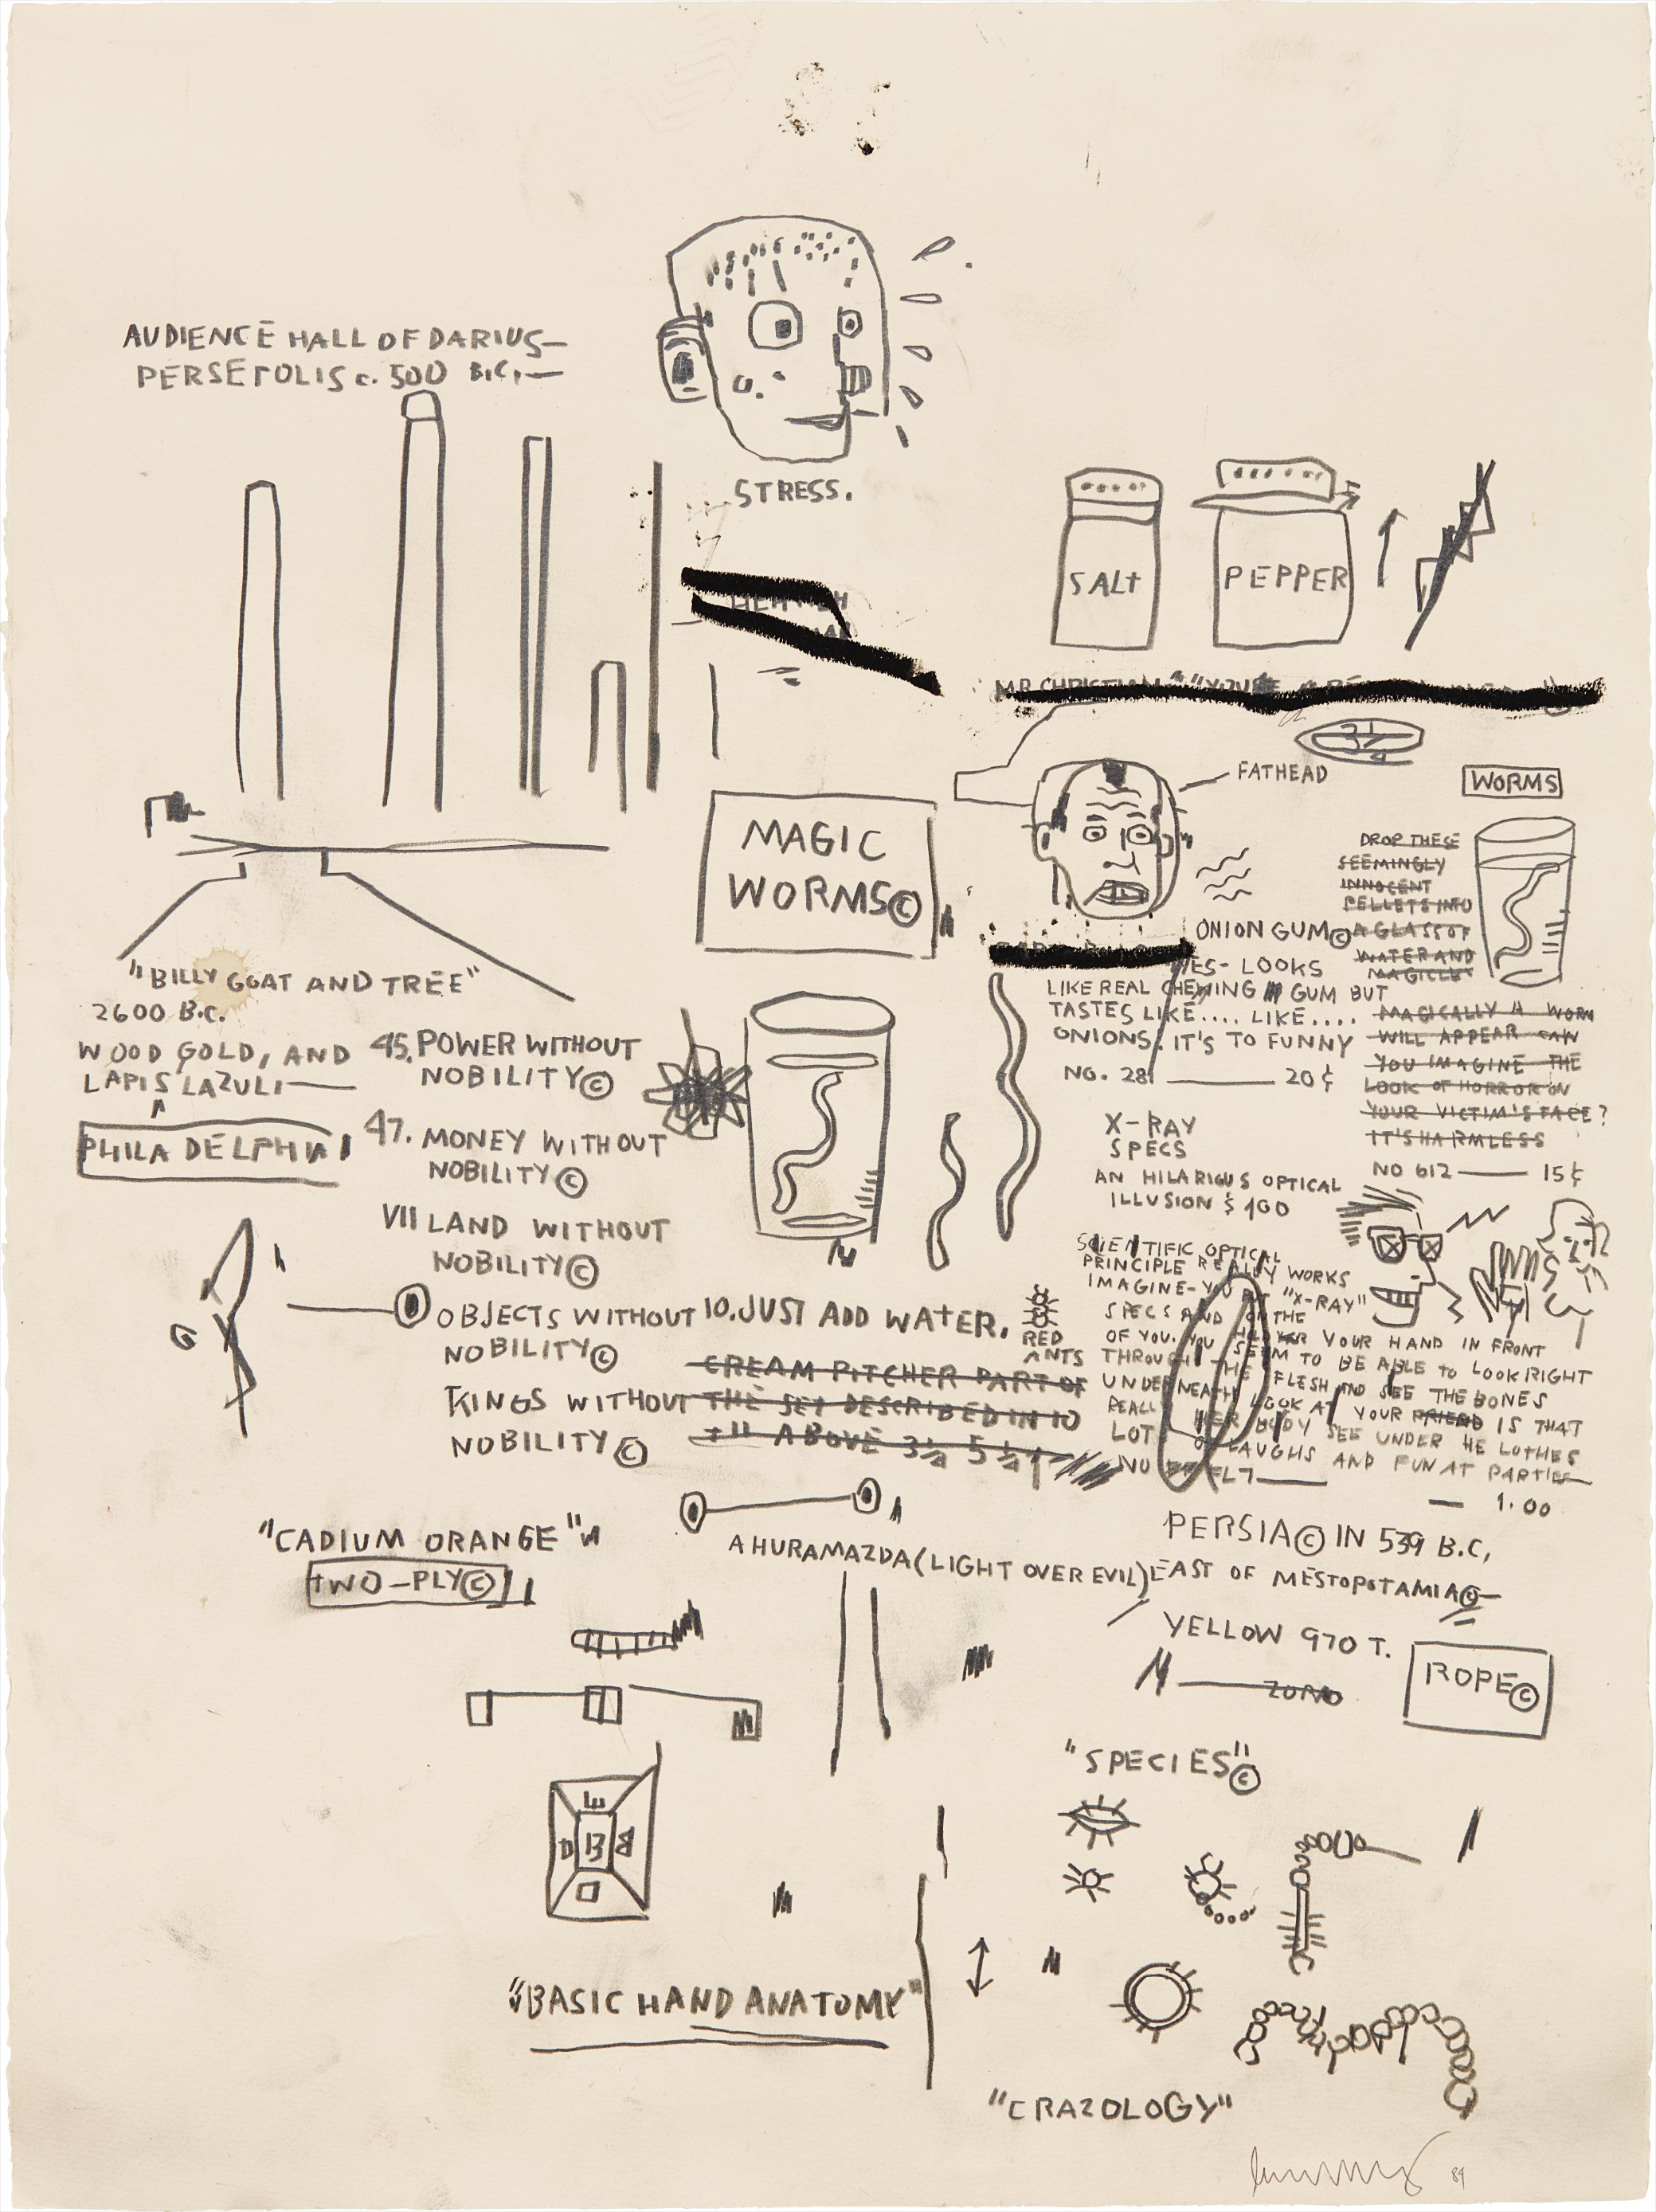 AUDIENCE HALL OF DARIUS—
PERSEPOLIS c. 500 B.C.—
STRESS.
SALT
PEPPER
MR. CHRISTIAN "YOU'RE
3 1/4
FATHEAD
WORMS
MAGIC
WORMS©
DROP THESE
SEEMINGLY
INNOCENT
PELLETS INTO
A GLASS OF
WATER AND
MAGICLLY
MAGICALLY A WORM
WILL APPEAR CAN
YOU IMAGINE THE
LOOK OF HORROR ON
YOUR VICTIM'S FACE?
IT'S HARMLESS
NO 612 —— 15¢
ONION GUM©
YES- LOOKS
LIKE REAL CHEWING GUM BUT
TASTES LIKE.... LIKE....
ONIONS. IT'S TO FUNNY
NO. 281 —— 20¢
X-RAY
SPECS
AN HILARIOUS OPTICAL
ILLUSION $ 100
SCIENTIFIC OPTICAL
PRINCIPLE REALLY WORKS
IMAGINE-YOU "X-RAY"
SPECS AND THE
OF YOU. YOU YOUR HAND IN FRONT
THROUGH THE SEEM TO BE ABLE TO LOOK RIGHT
UNDERNEATH FLESH AND SEE THE BONES
REALLY LOOK AT YOUR FRIEND IS THAT
LOT HER BODY SEE UNDER HE LOTHES
OF LAUGHS AND FUN AT PARTIES
NO —— 1.00
"BILLY GOAT AND TREE"
2600 B.C.
WOOD GOLD, AND
LAPIS LAZULI——
PHILADELPHIA
45. POWER WITHOUT
NOBILITY©
47. MONEY WITHOUT
NOBILITY©
VII LAND WITHOUT
NOBILITY©
OBJECTS WITHOUT
NOBILITY©
KINGS WITHOUT
NOBILITY©
10. JUST ADD WATER.
RED
ANTS
CREAM PITCHER PART OF
THE SET DESCRIBED IN 10
ABOVE 3 1/2 5 1/4
"CADIUM ORANGE"
TWO-PLY©
AHURAMAZDA (LIGHT OVER EVIL)
PERSIA© IN 539 B.C,
EAST OF MESTOPOTAMIA©—
YELLOW 970 T.
ROPE©
"SPECIES"©
"BASIC HAND ANATOMY"
"CRAZOLOGY"
84